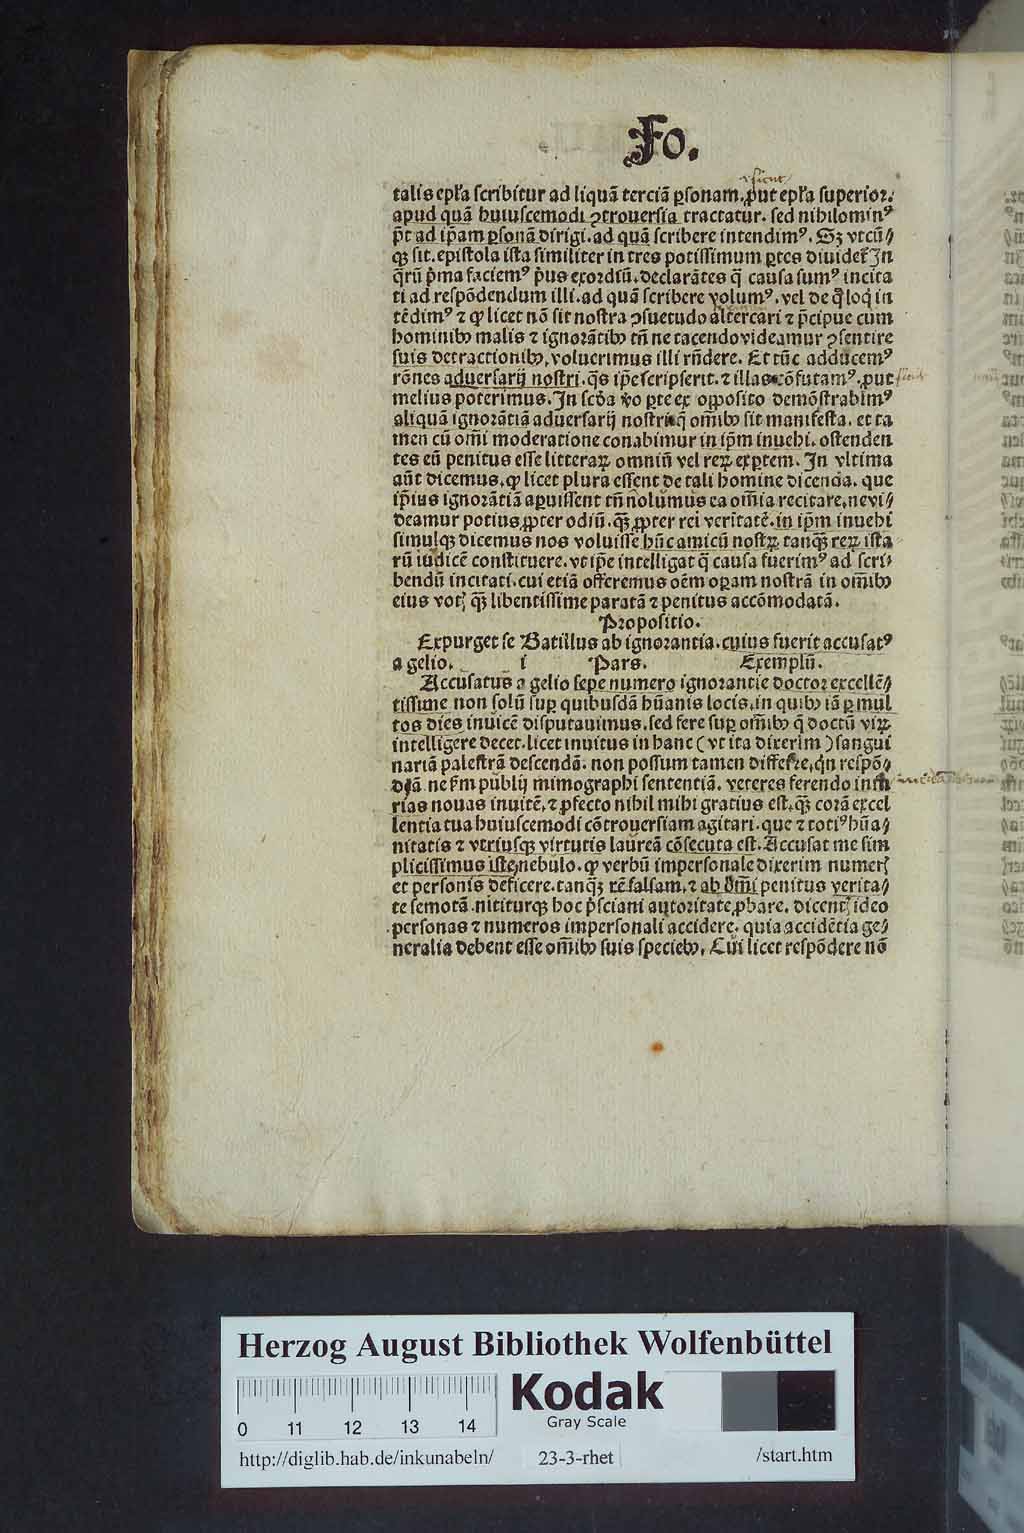 Fo.
vſicut
talis epľa ſcribitur ad liquã terciã ꝑſonam, ꝓut epľa ſuperior.
apud quã huiuſcemodi ꝯtrouerſia tractatur. ſed nihilominꝰ
p̃t ad ip̃am ꝑſonã dirigi. ad quã ſcribere intendimꝰ. Sꝫ vtcũ⸗
qꝫ ſit. epiſtola iſta ſimiliter in tres potiſſimum ꝑtes diuidet̃ In
q̃rũ p̃ma faciemꝰ p̃us exordiũ. declarãtes q̃ cauſa ſumꝰ incita
ti ad reſpõdendum illi. ad quã ſcribere volumꝰ. vel de q̃ loq̃ in
tẽdimꝰ ⁊ ꝙ licet nõ ſit noſtra ꝯſuetudo altercari ⁊ p̃cipue cum
hominibꝰ malis ⁊ ignorãtibꝰ tñ ne tacendo videamur ꝯſentire
ſuis detractionibꝰ, voluerimus illi rñdere. Et tũc adducemꝰ
rõnes aduerſarij noſtri. q̃s ip̃e ſcripſerit. ⁊ illas cõfutamꝰ. ꝓut
melius poterimus. In ſcďa v̊o ꝑte ex oppoſito demõſtrabimꝰ
aliquã ignorãtiã aduerſarij noſtri q̃ om̃ibꝰ ſit manifeſta. et ta
men cũ om̃i moderatione conabimur in ip̃m inuehi. oſtenden
tes eũ penitus eſſe litteraꝝ omniũ vel reꝝ exꝑtem. In vltima
aũt dicemus, ꝙ licet plura eſſent de tali homine dicenda. que
ip̃ius ignorãtiã aperuiſſent tñ nolumus ea om̃ia recitare, ne vi⸗
deamur potius ꝓpter odiũ. qꝫ̃ ꝓpter rei veritatẽ. in ip̃m inuehi
ſimulqꝫ dicemus nos voluiſſe hũc amicũ noſtꝝ tanqꝫ̃ reꝝ iſta
rũ iudicẽ conſtituere. vt ip̃e intelligat q̃ cauſa fuerimꝰ ad ſcri⸗
bendũ incitati. cui etiã offeremus oẽm oꝑam noſtrã in om̃ibꝰ
eius votꝭ qꝫ̃ libentiſſime paratã ⁊ penitus accõmodatã.
Propoſitio.
Expurget ſe Batillus ab ignorantia. cuius fuerit accuſatꝰ
a gelio. i Pars. Exemplũ.
Accuſatus a gelio ſepe numero ignorantie doctor excellẽ⸗
tiſſime non ſolũ ſuꝑ quibuſdã hũanis locis, in quibꝰ iã ꝑ mul
tos dies inuicẽ diſputauimus. ſed fere ſuꝑ om̃ibꝰ q̃ doctũ viꝝ
intelligere decet. licet inuitus in hanc (vt ita dixerim) ſangui
nariã paleſtrã deſcendã. non poſſum tamen differre, q̃n reſpõ⸗
deã. ne ẜm publij mimographi ſententiã. veteres ferendo iniu
rias nouas inuitẽ, ⁊ ꝓfecto nihil mihi gratius eſt. qꝫ̃ corã excel
lentia tua huiuſcemodi cõtrouerſiam agitari. que ⁊ totiꝰ hũa⸗
nitatis ⁊ vtriuſqꝫ virtutis laureã cõſecuta eſt. Accuſat me ſim
pliciſſimus iſte nebulo. ꝙ verbũ imperſonale dixerim numerꝭ
et perſonis deficere. tanqꝫ̃ rẽ falſam, ⁊ ab om̃i penitus verita⸗
te ſemotã. nititurqꝫ hoc p̃ſciani autoritate ꝓbare. dicentꝭ ideo
perſonas ⁊ numeros imperſonali accidere. quia accidẽtia ge⸗
neralia debent eſſe om̃ibꝰ ſuis ſpeciebꝰ. Cui licet reſpõdere nõ
Herzog August Bibliothek Wolfenbüttel
0 11 12 13 14
Kodak
Gray Scale
http://diglib.hab.de/inkunabeln/ 23-3-rhet /start.htm